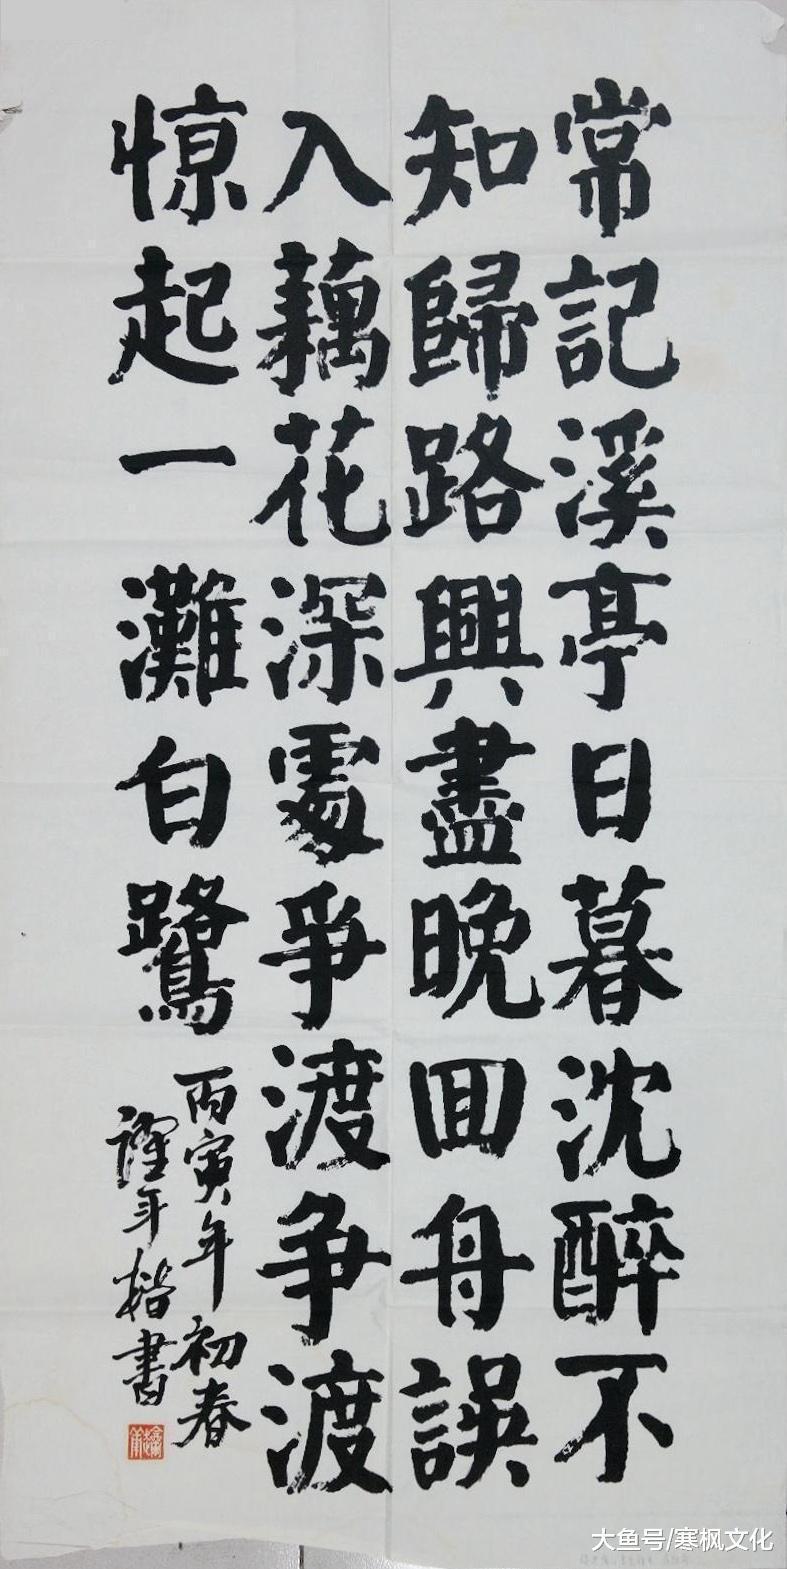 常記溪亭日暮沈醉不
知歸路興盡晚回舟誤
入藕花深處爭渡争渡
惊起一灘白鷺
丙寅年初春
年楷書
大鱼号/寒枫文化